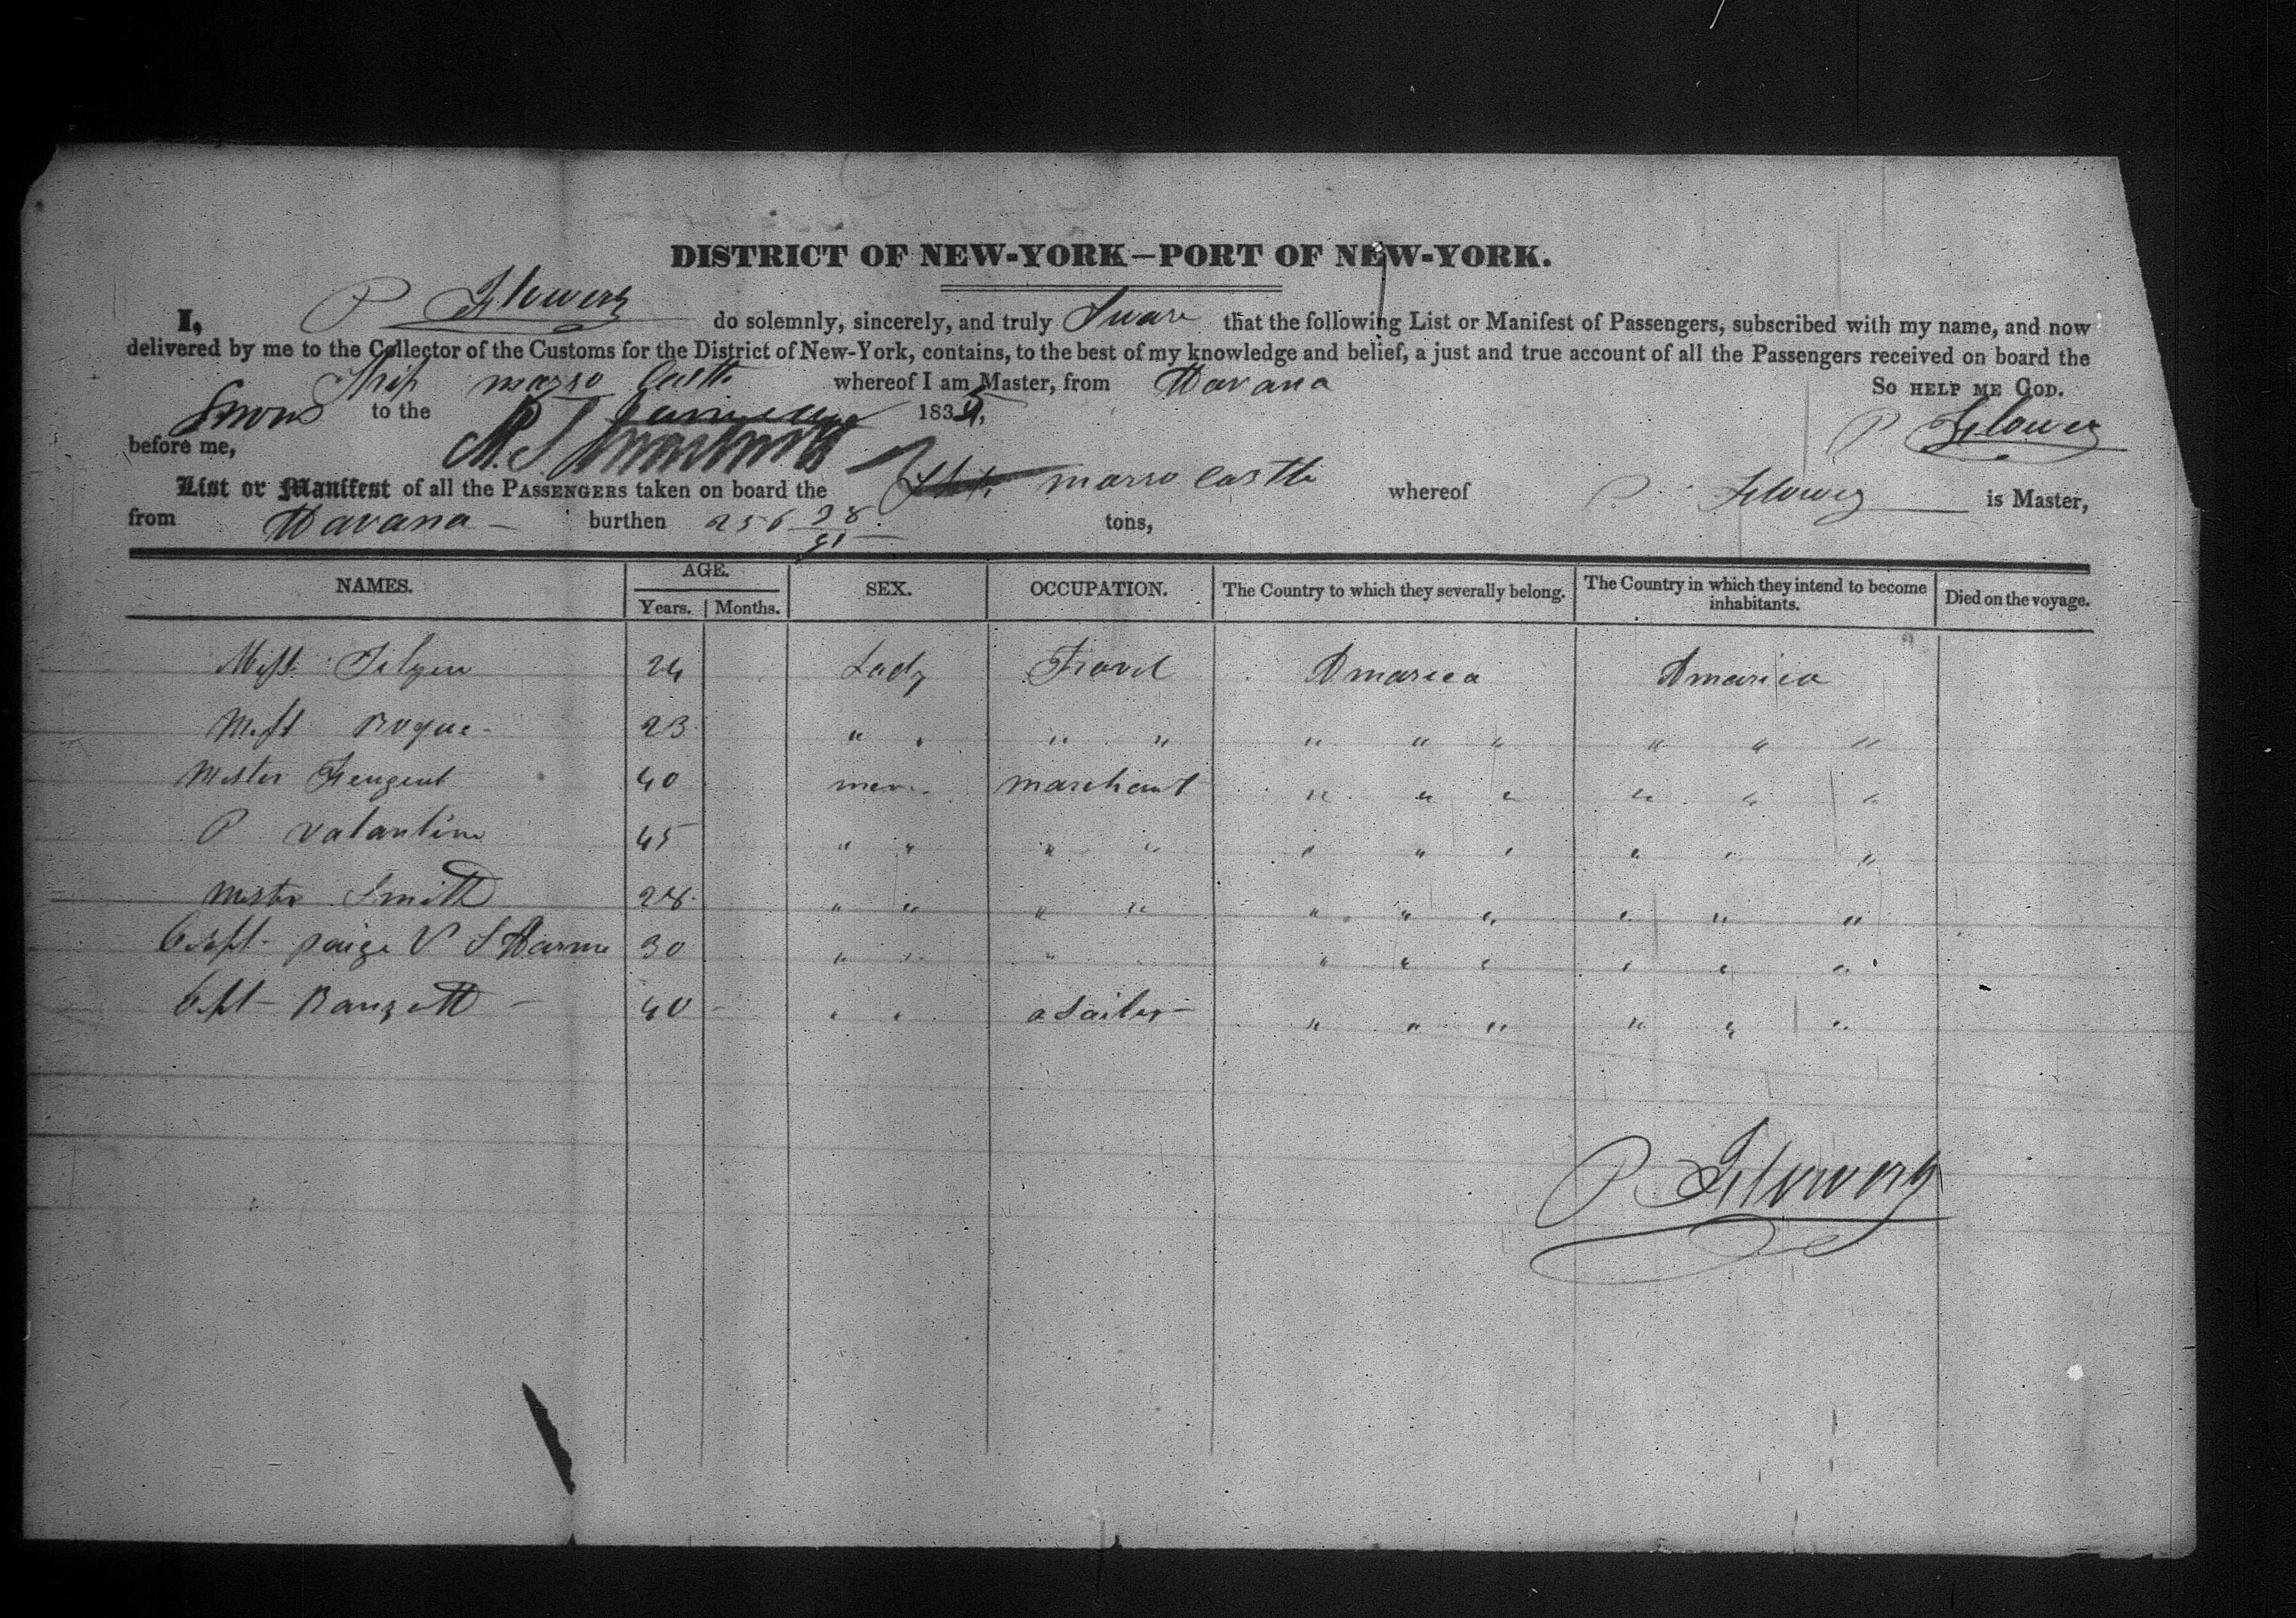 DISTRICT OF NEW-YORK—PORT OF NEW-YORK.
I, P Flowery do solemnly, sincerely, and truly Sware that the following List or Manifest of Passengers, subscribed with my name, and now
delivered by me to the Collector of the Customs for the District of New-York, contains, to the best of my knowledge and belief, a just and true account of all the Passengers received on board the
Ship marro Castle whereof I am Master, from Havana So HELP ME GOD.
Sworn to the 1835,
before me, P Flowery
List or Manifest of all the PASSENGERS taken on board the marro Castle whereof P. Flowery is Master,
from Havana — burthen 256 tons,
NAMES. AGE. SEX. OCCUPATION. The Country to which they severally belong. The Country in which they intend to become inhabitants. Died on the voyage.
Years. Months.
Miss 24 Lady Travel Amarica Amarica
Miss Bogue 23 " " " " " " " " " "
Mister 40 men marchant " " " " " "
P Valantine 45 " " " " " " " " " "
Mister Smith 28 " " " " " " " " " "
Capt paige V S 30 " " " " " " " " "
Capt — 40 " " a Sailor " " " " " "
P Flowery